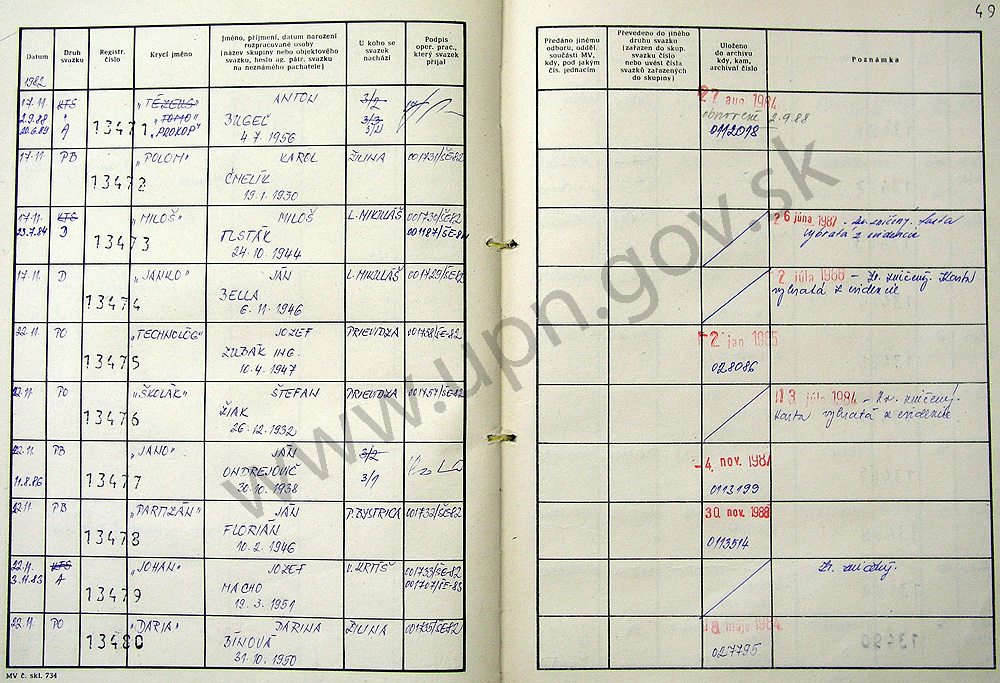 49
Datum
Druh svazku
Registr. číslo
Krycí jméno
Jméno, příjmení, datum narození rozpracované osoby (název skupiny nebo objektového svazku, heslo ag. pátr. svazku na neznámého pachatele)
U koho se svazek nachází
Podpis oper. prac., který svazek přijal
Předáno jinému odboru, odděl. součásti MV, kdy, pod jakým čís. jednacím
Převedeno do jiného druhu svazku (zařazen do skup. svazku číslo nebo uvést čísla svazků zařazených do skupiny)
Uloženo do archivu kdy, kam, archivní číslo
Poznámka
1982
17.11. KTS ANTON 3/2 27 aug 1984
2.9.88 " „TOMO" BILGEĽ 3/3 obnovené 2.9.88
20.6.89 A 13471 „PROKOP" 4.7.1956 3/2 0112018
17.11 PB „POLOM" KAROL ŽILINA 001731/ŠE-82
13472 ČMELÍK
19.1.1930
17.11. KTS „MILOŠ" MILOŠ L. MIKULÁŠ 001730/ŠE-82 26 júna 1987 - Zv. zničený. Karta
23.7.84 D 13473 TLSTÁK 001187/ŠE-84 vybratá z evidencie
24.10.1944
17.11. D „JANKO" JÁN L. MIKULÁŠ 001729/ŠE-82 2 júla 1986 - Zv. zničený. Karta
13474 BELLA vybratá z evidencie
6.11.1946
22.11. PO „TECHNOLÓG" JOZEF PRIEVIDZA 001758/ŠE-82 2 jan. 1985
13475 ZUBÁK ING. 028086
10.4.1947
22.11. PO „ŠKOLÁK" ŠTEFAN PRIEVIDZA 001757/ŠE-82 13 júla 1984 - Zv. zničený.
13476 ŽIAK Karta vybratá z evidencie
26.12.1932
22.11. PB „JANO" JÁN 3/2 -4. nov. 1987
11.8.86 13477 ONDREJOVIČ 3/1 0113199
30.10.1938
22.11. PB „PARTIZÁN" JÁN P. BYSTRICA 001732/ŠE-82 30 nov. 1988
13478 FLORIÁN 0113514
10.2.1946
22.11. KTS „JOHAN" JOZEF V. KRTÍŠ 001733/ŠE-82 Zv. zničený.
3.11.83 A 13479 MACHO 001707/ŠE-83
19.3.1951
22.11. PO „DARIA" DARINA ŽILINA 001735/ŠE-82 18 mája 1984
13480 BÍNOVÁ 027795
31.10.1950
MV č. skl. 734
www.upn.gov.sk